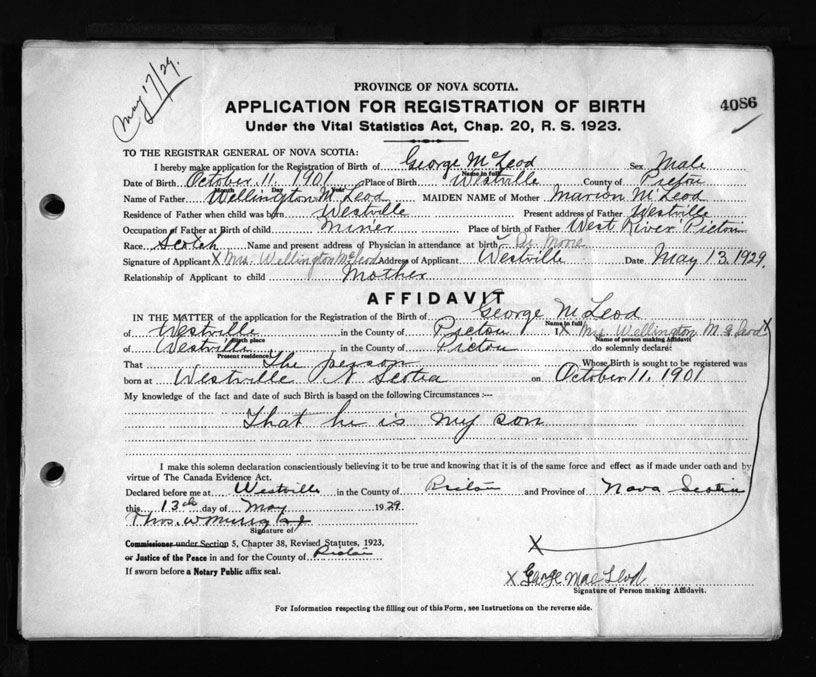 May 17/29.
PROVINCE OF NOVA SCOTIA.
APPLICATION FOR REGISTRATION OF BIRTH
4086
Under the Vital Statistics Act, Chap. 20, R. S. 1923.
TO THE REGISTRAR GENERAL OF NOVA SCOTIA:
I hereby make application for the Registration of Birth of George McLeod Sex Male
Name in full
Date of Birth October 11. 1901 Place of Birth Westville County of Pictou
Month Day Year
Name of Father Wellington McLeod MAIDEN NAME of Mother Marion McLeod
Residence of Father when child was born Westville Present address of Father Westville
Occupation of Father at Birth of child Miner Place of birth of Father West River Pictou
Race Scotch Name and present address of Physician in attendance at birth Dr.
Signature of Applicant X Mrs. Wellington McLeod Address of Applicant Westville Date May 13. 1929.
Relationship of Applicant to child Mother
AFFIDAVIT
IN THE MATTER of the application for the Registration of the Birth of George McLeod
Name in full
of Westville in the County of Pictou I, X Mrs Wellington McLeod X
Birth place Name of person making Affidavit
of Westville in the County of Pictou do solemnly declare:
Present residence
That The person Whose Birth is sought to be registered was
born at Westville N Scotia on October 11. 1901
My knowledge of the fact and date of such Birth is based on the following Circumstances:—
That he is my son
I make this solemn declaration conscientiously believing it to be true and knowing that it is of the same force and effect as if made under oath and by
virtue of The Canada Evidence Act.
Declared before me at Westville in the County of Pictou and Province of Nova Scotia
this 13th day of May 1929
Thos. W
Signature of
Commissioner under Section 5, Chapter 38, Revised Statutes, 1923,
or Justice of the Peace in and for the County of Pictou
X
If sworn before a Notary Public affix seal.
X George MacLeod
Signature of Person making Affidavit.
For Information respecting the filling out of this Form, see Instructions on the reverse side.